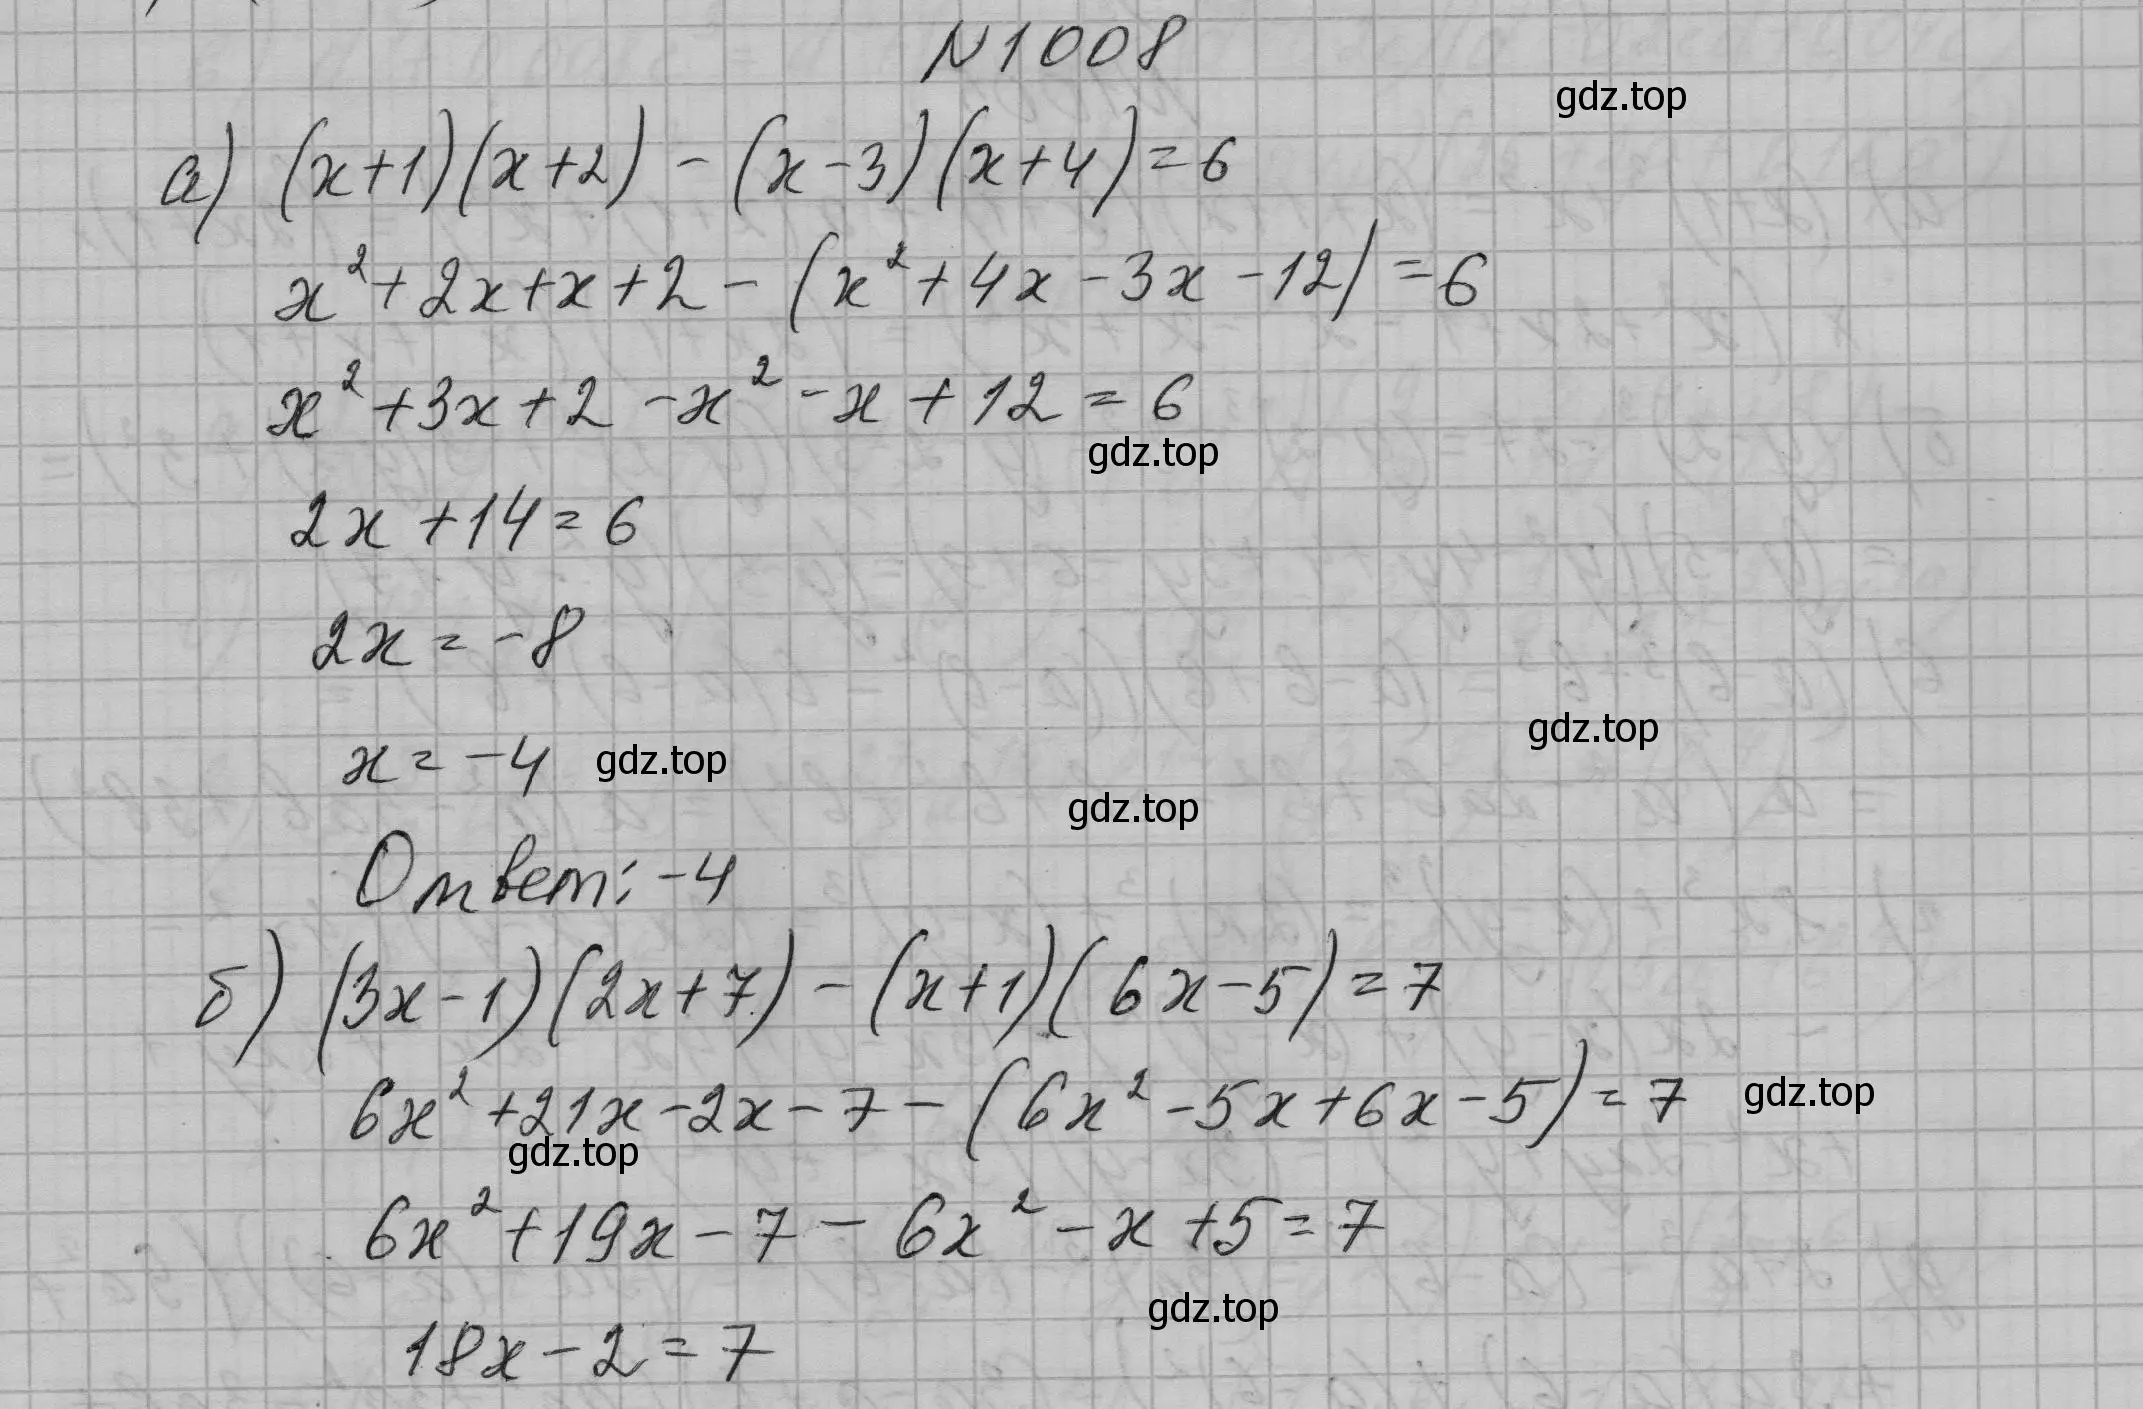 N1008
gdz.top
а) (x+1)(x+2) - (x-3)(x+4) = 6
x² + 2x + x + 2 - (x² + 4x - 3x - 12) = 6
x² + 3x + 2 - x² - x + 12 = 6
gdz.top
2x + 14 = 6
2x = -8
gdz.top
x = -4 gdz.top
gdz.top
Ответ: -4
б) (3x-1)(2x+7) - (x+1)(6x-5) = 7
6x² + 21x - 2x - 7 - (6x² - 5x + 6x - 5) = 7 gdz.top
gdz.top
6x² + 19x - 7 - 6x² - x + 5 = 7
gdz.top
18x - 2 = 7